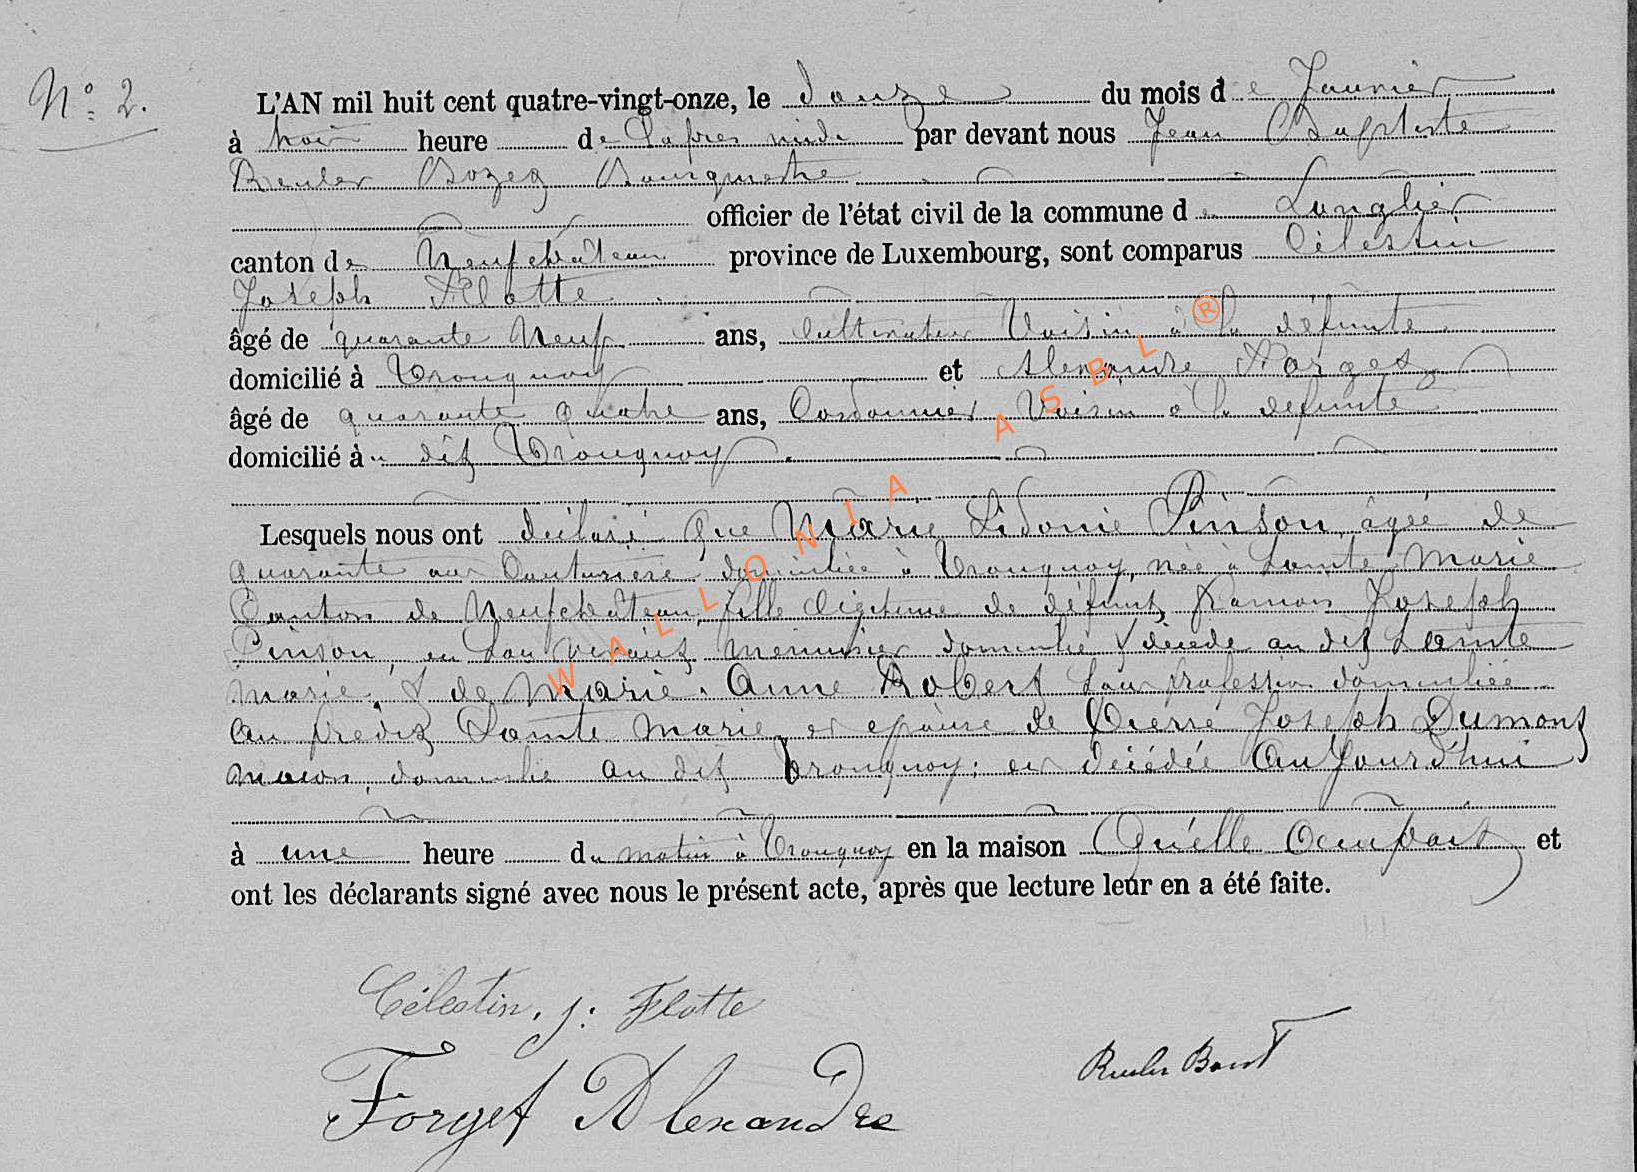 N° 2.
L'AN mil huit cent quatre-vingt-onze, le douze du mois de Janvier
à trois heure de l'apres midi par devant nous Jean Baptiste
Bourgmestre
officier de l'état civil de la commune de Longlier
canton de Neufchâteau province de Luxembourg, sont comparus Célestin
Joseph Flotte
âgé de quarante Neuf ans, Cultivateur Voisin à la défunte
domicilié à Tronquoy et Alexandre Forget
âgé de quarante quatre ans, Cordonnier Voisin à la defunte
domicilié au dit Tronquoy
Lesquels nous ont déclaré que Marie Sidonie Pinson, agée de
quarante ans Couturiere domiciliée à Tronquoy, née à Sainte Marie
Canton de Neufchâteau, fille légitime de défunt Joseph
Pinson, en son vivant menuisier domicilié & décédé au dit Sainte
Marie, & de Marie Anne Robert sans profession domiciliée
au predit Sainte Marie et épouse de Pierre Joseph Dumont
macon, domicilié au dit Tronquoy; est décédée Aujourd'hui
à une heure du matin à Tronquoy en la maison Qu'elle Occupait et
ont les déclarants signé avec nous le présent acte, après que lecture leur en a été faite.
Célestin, J: Flotte
Forget Alexandre
WALLONIA ASBL ®